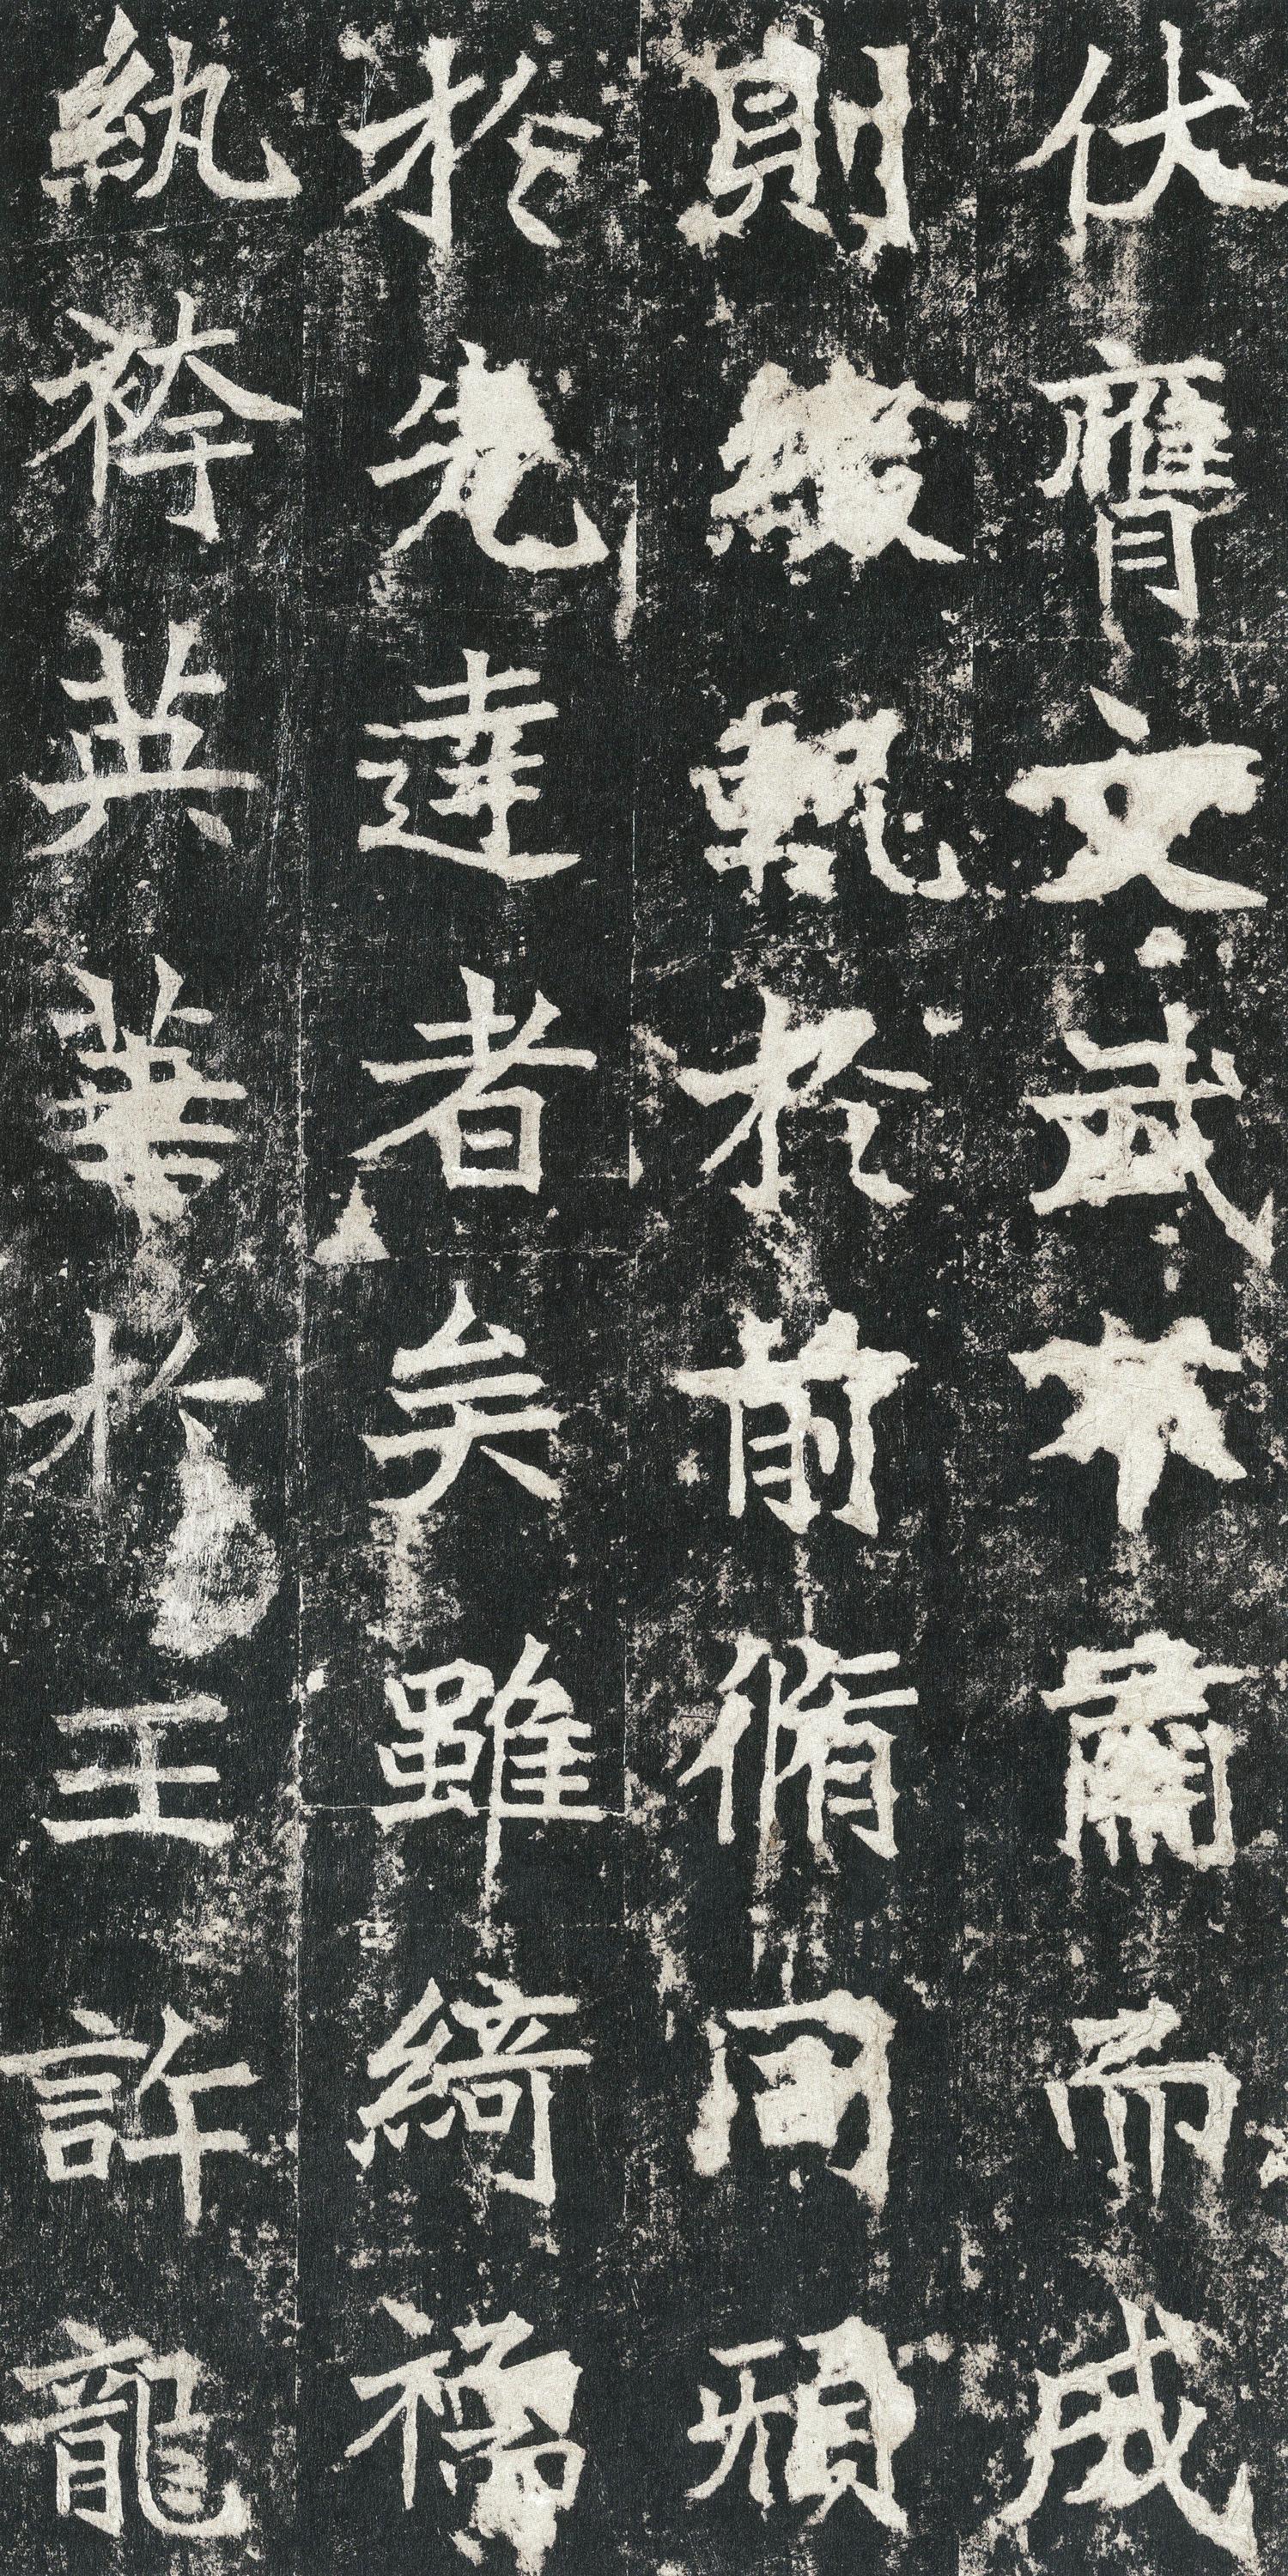 伏膺文武不肅而成
則綴軌於前脩同
於先達者矣雖綺襦
紈袴英華於王許龍